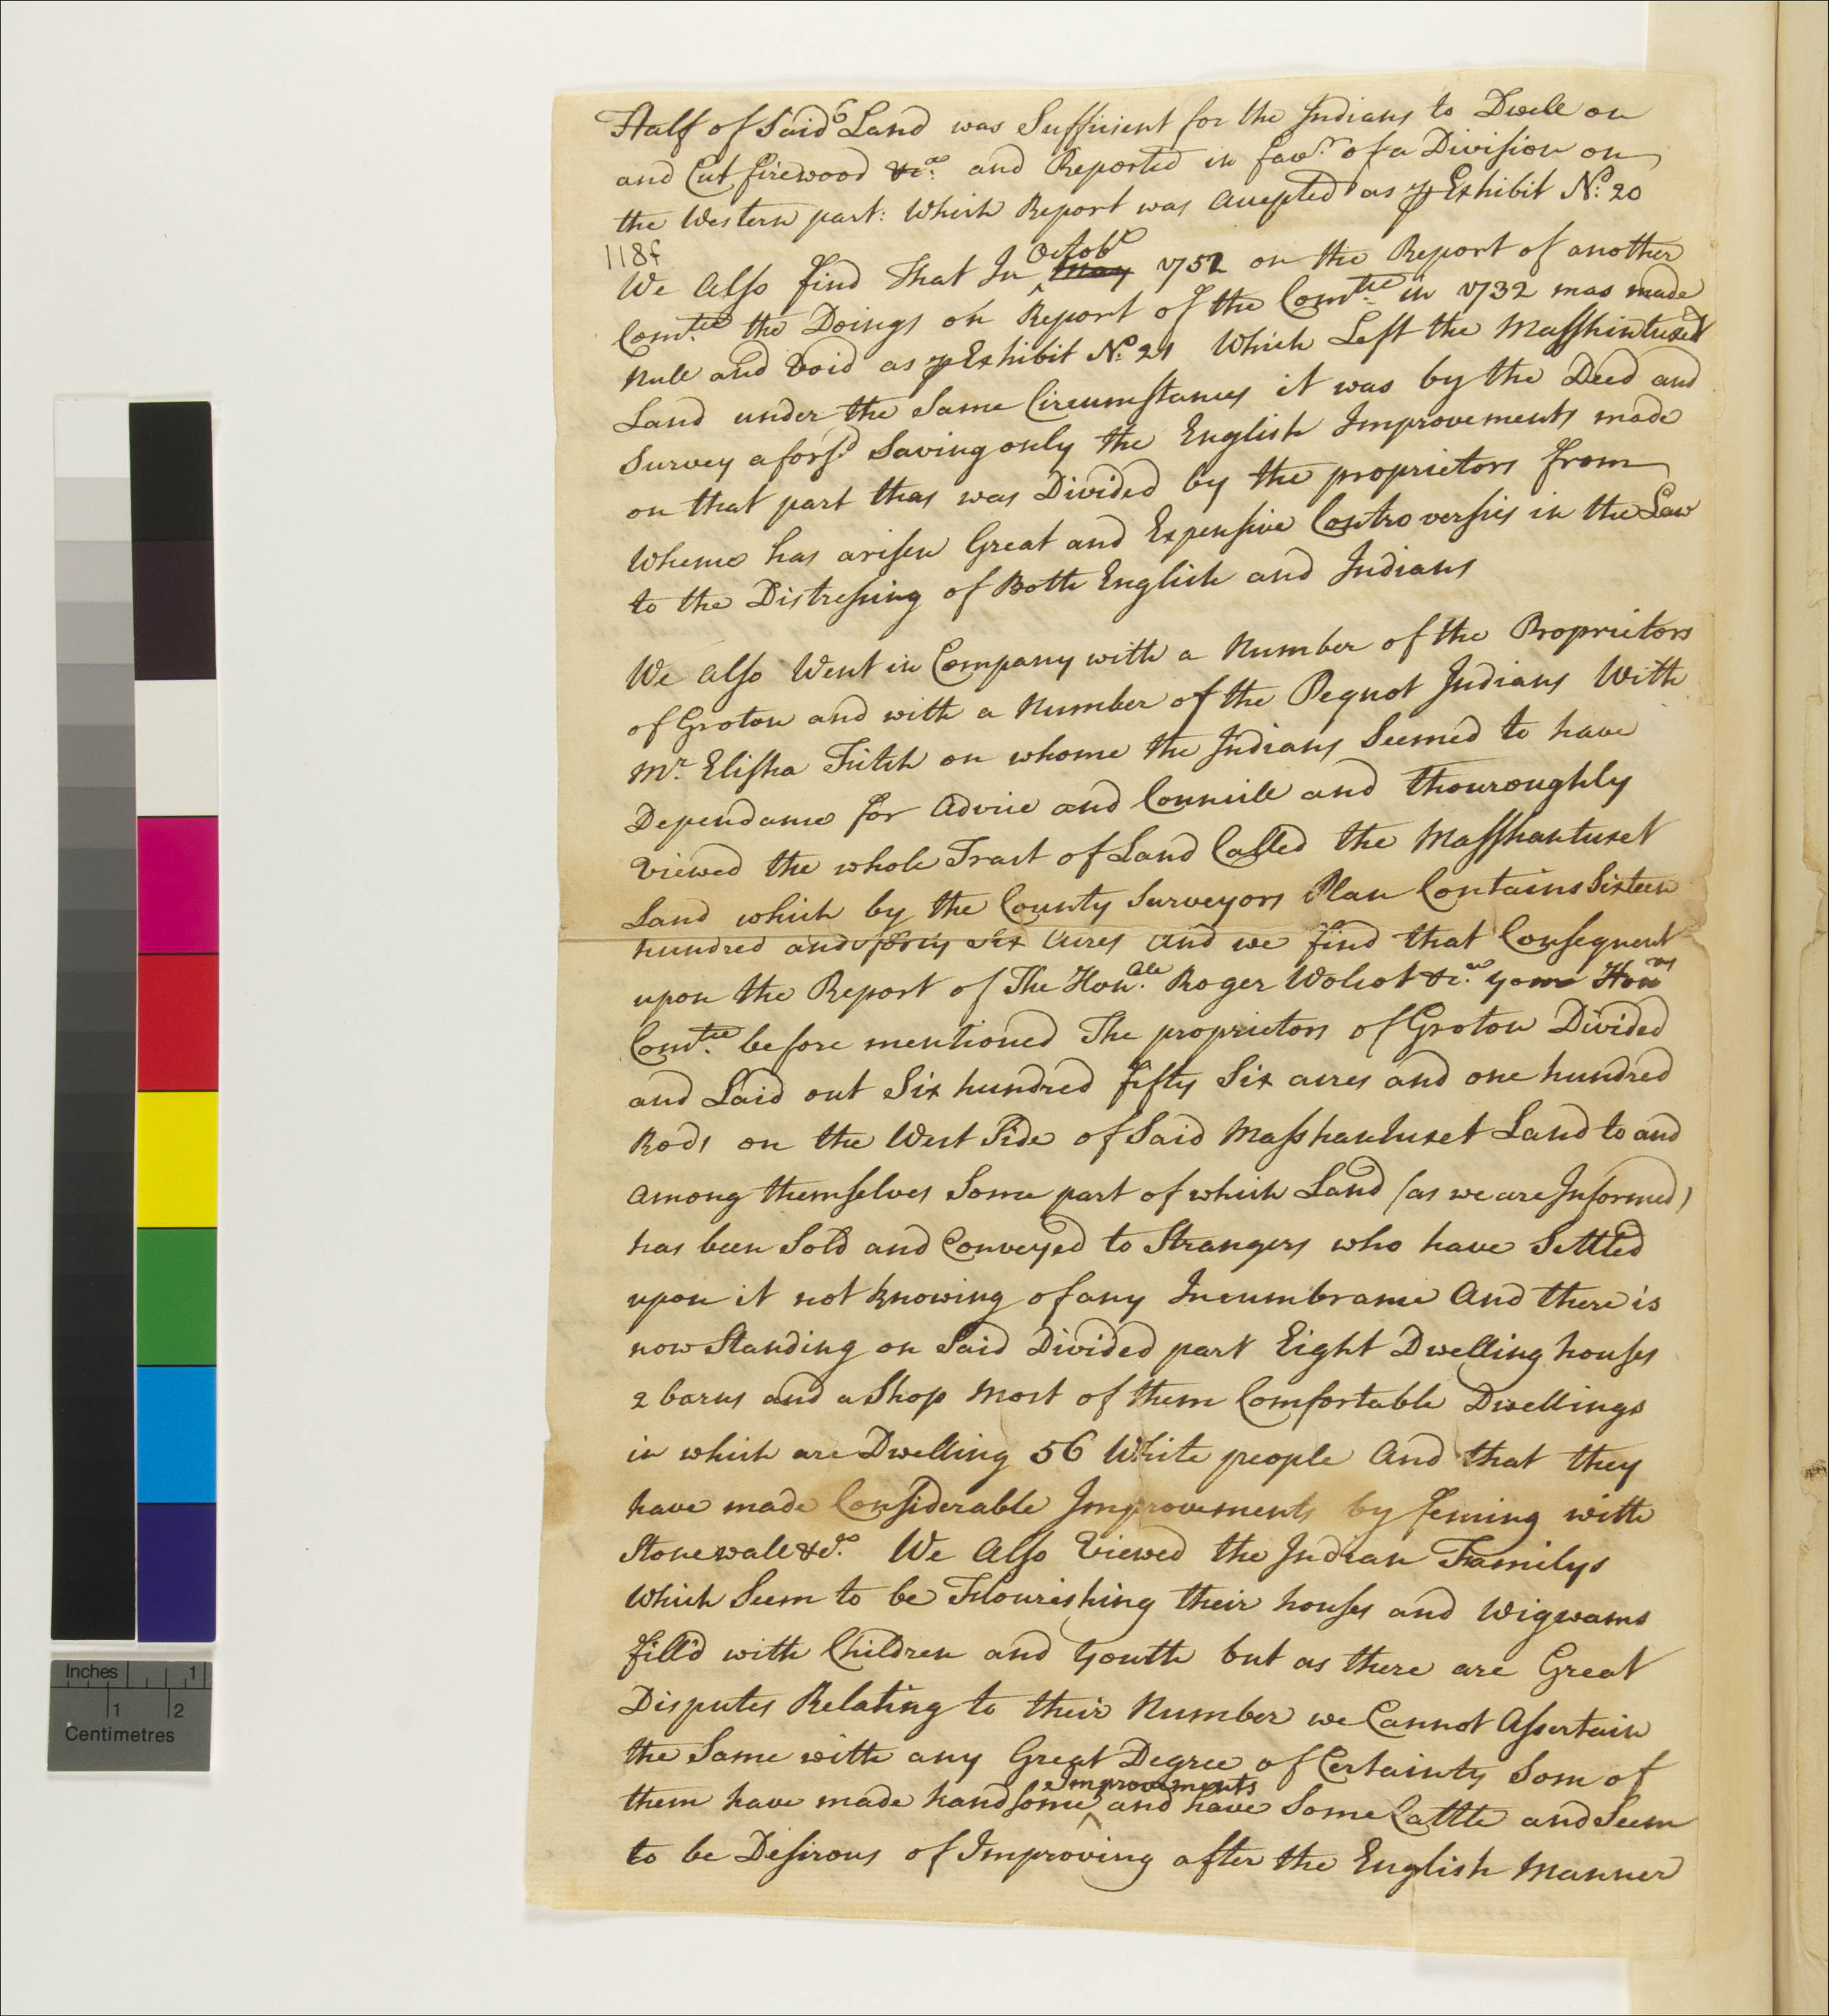 Half of Said Land was Sufficient for the Indians to Dwell on
and Cut firewood &c.a and Reported in fav.r of a Division on
the Western part: Which Report was accepted as p Exhibit N.o 20
118f
We Also find That In Octob.r
May 1752 on the Report of another
Com.tee the Doings on Report of the Com.tee in 1732 was made
Null and Void as p Exhibit N.o 21 Which Left the Masshantuxet
Land under the Same Circumstances it was by the Deed and
Survey afors.d Saving only the English Improvements made
on that part thas was Divided by the proprietors from
Whence has arisen Great and Expensive Controversies in the Law
to the Distressing of Both English and Indians
We also Went in Company with a Number of the Proprietors
of Groton and with a Number of the Pequot Indians With
Mr. Elisha Fitch on whome the Indians Seemed to have
Dependance for Advice and Councill and thouroughly
Viewed the whole Tract of Land Called the Masshantuxet
Land which by the County Surveyors Plan Contains Sixteen
hundred and forty six acres and we find that Consequent
upon the Report of The Hon.ble Roger Wolcot &c.a your Honrs
Com.tee before mentioned The proprietors of Groton Divided
and Laid out Six hundred fifty Six acres and one hundred
Rods on the West Side of Said Masshantuxet Land to and
among themselves Some part of which Land (as we are Informed)
has been Sold and Conveyed to Strangers who have Settled
upon it not knowing of any Incumbrance And there is
now Standing on Said Divided part Eight Dwelling houses
2 barns and a Shop Most of them Comfortable Dwellings
in which are Dwelling 56 White people And that they
have made Considerable Improvements by fencing with
Stone wall &c.a We Also Viewed the Indian Familys
Which Seem to be Flourishing their houses and Wigwams
fill'd with Children and Youth but as there are Great
Disputes Relating to their Number we Cannot Assertain
the Same with any Great Degree of Certainty Som of
Improvements
them have made handsome ^ and have Some Cattle and Seem
to be Desirous of Improving after the English Manner
Inches 1
1 2
Centimetres